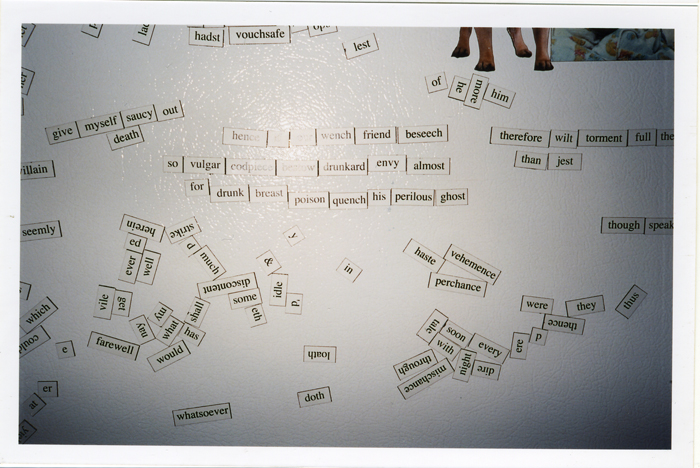 hadst vouchsafe
lest
of
more he him
give myself saucy out
death
wench friend beseech
therefore wilt torment full the
than jest
so vulgar drunkard envy almost
for drunk breast poison quench his perilous ghost
seemly
though speak
herein strike
ed p much
ever well
y
&
in
haste vehemence
perchance
discontent
some idle p.
eth
vile get
shall
my what has
nay
would
farewell
which
could
e
were they thus
hence
p
ere
tale soon every
with
through night dire
mischance
loath
doth
er
at
whatsoever